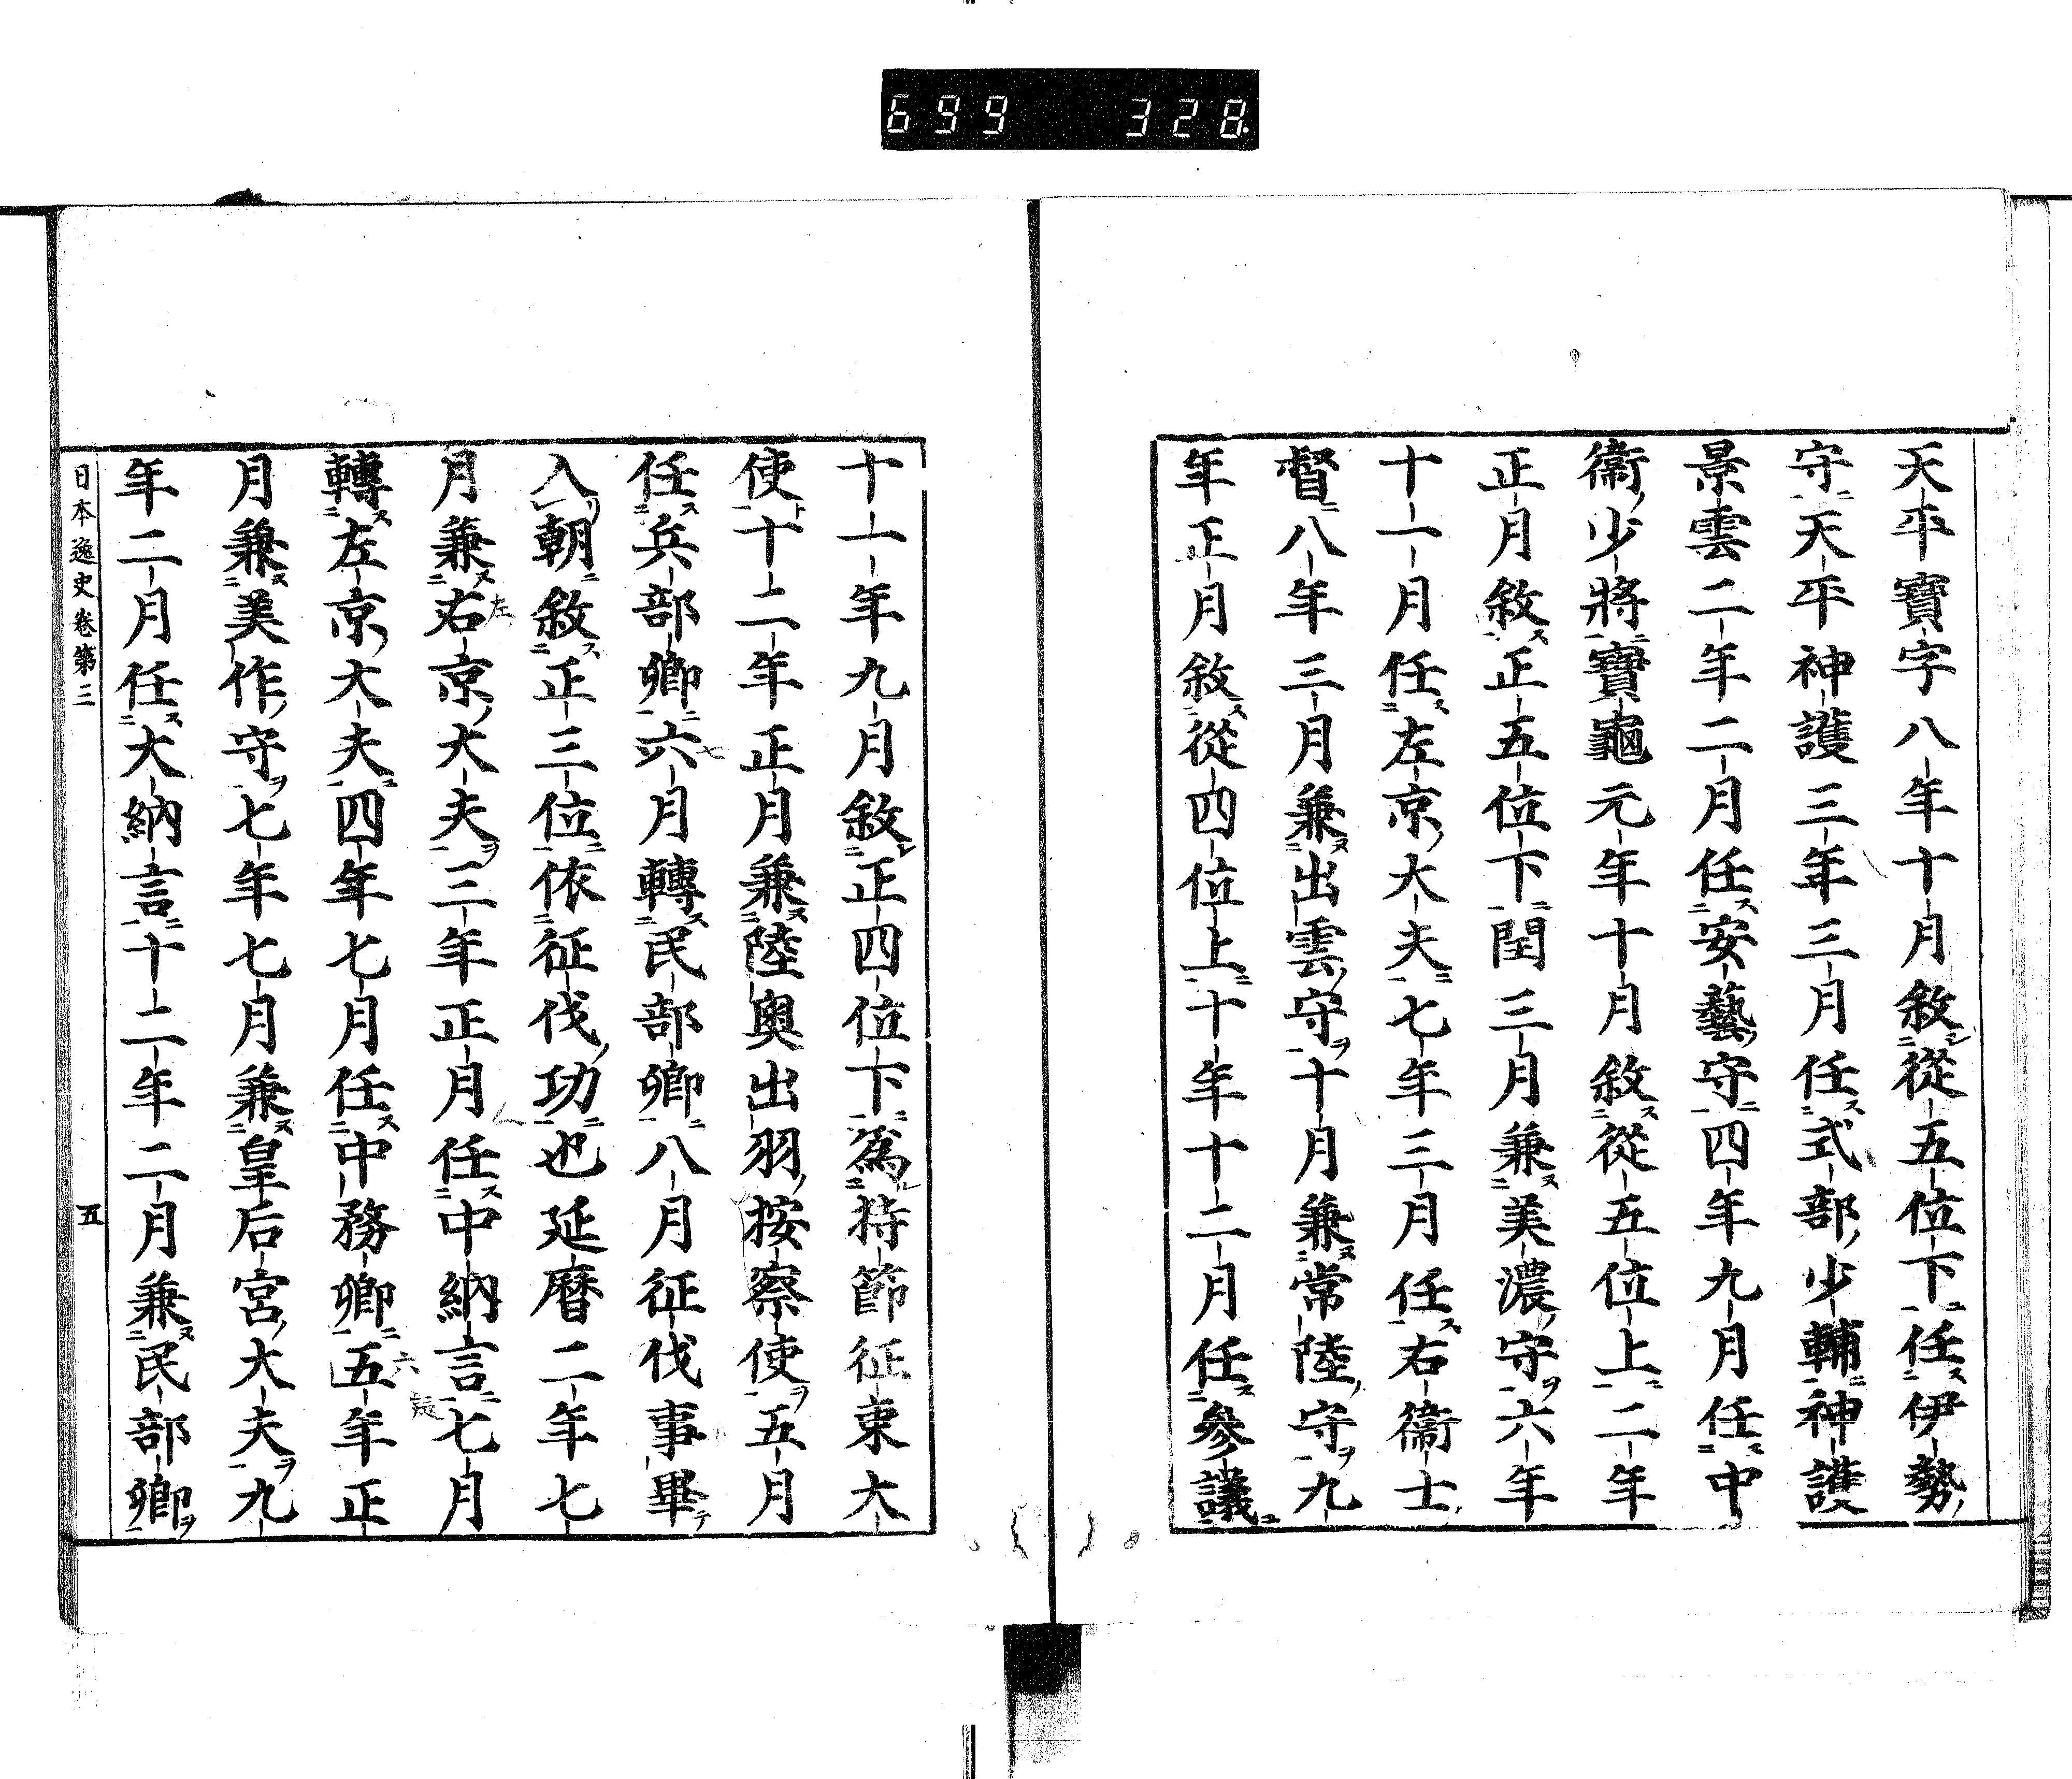 699 328
天平寶字八年十月敘從五位下任伊勢
守天平神護三年三月任式部少輔神護
景雲二年二月任安藝守四年九月任中
衞少將寶龜元年十月敘從五位上二年
正月敘正五位下閏三月兼美濃守六年
十一月任左京大夫七年三月任右衞士
督八年三月兼出雲守十月兼常陸守九
年正月敘從四位上十年十二月任參議
十一年九月敘正四位下爲持節征東大
使十二年正月兼陸奧出羽按察使五月
任兵部卿六月轉民部卿八月征伐事畢
入朝敘正三位依征伐功也延曆二年七
月兼右京大夫三年正月任中納言七月
轉左京大夫四年七月任中務卿五年正
月兼美作守七年七月兼皇后宮大夫九
年二月任大納言十二年二月兼民部卿
日本逸史卷第三 五